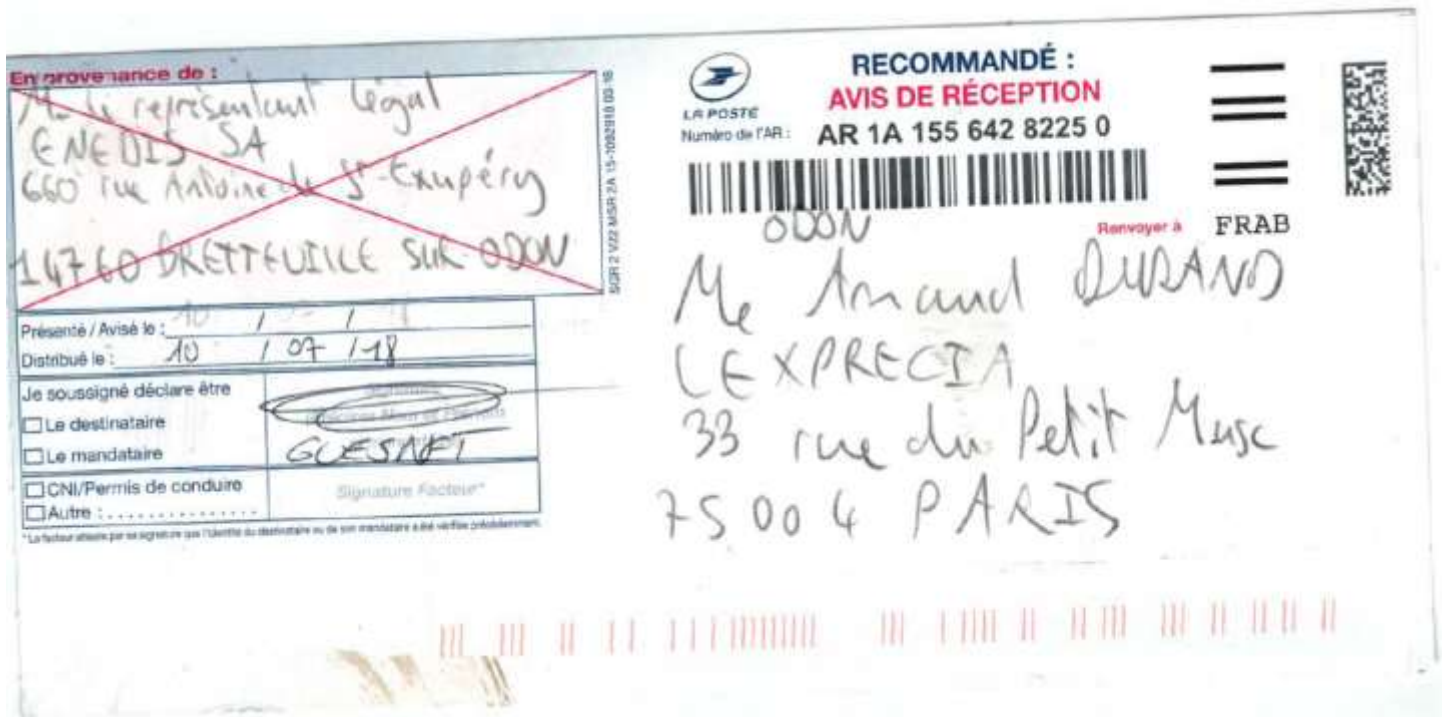 En provenance de :
M. le représentant légal
ENEDIS SA
660 rue Antoine de St-Exupéry
14760 BRETTEVILLE SUR ODON
SGR 2 V22 MSR 2A 15-1092918 03-16
Présenté / Avisé le : 10 / /
Distribué le : 10 / 07 / 18
Je soussigné déclare être
Le destinataire
Le mandataire
GUESNET
CNI/Permis de conduire
Autre : . . . . . . . . . . . . . .
Signature Facteur*
* Le facteur atteste par sa signature que l'identité du destinataire ou de son mandataire a été vérifiée précédemment.
LA POSTE
RECOMMANDÉ :
AVIS DE RÉCEPTION
Numéro de l'AR : AR 1A 155 642 8225 0
ODON
Renvoyer à FRAB
Me Arnaud DURAND
LEXPRECIA
33 rue du Petit Musc
75004 PARIS